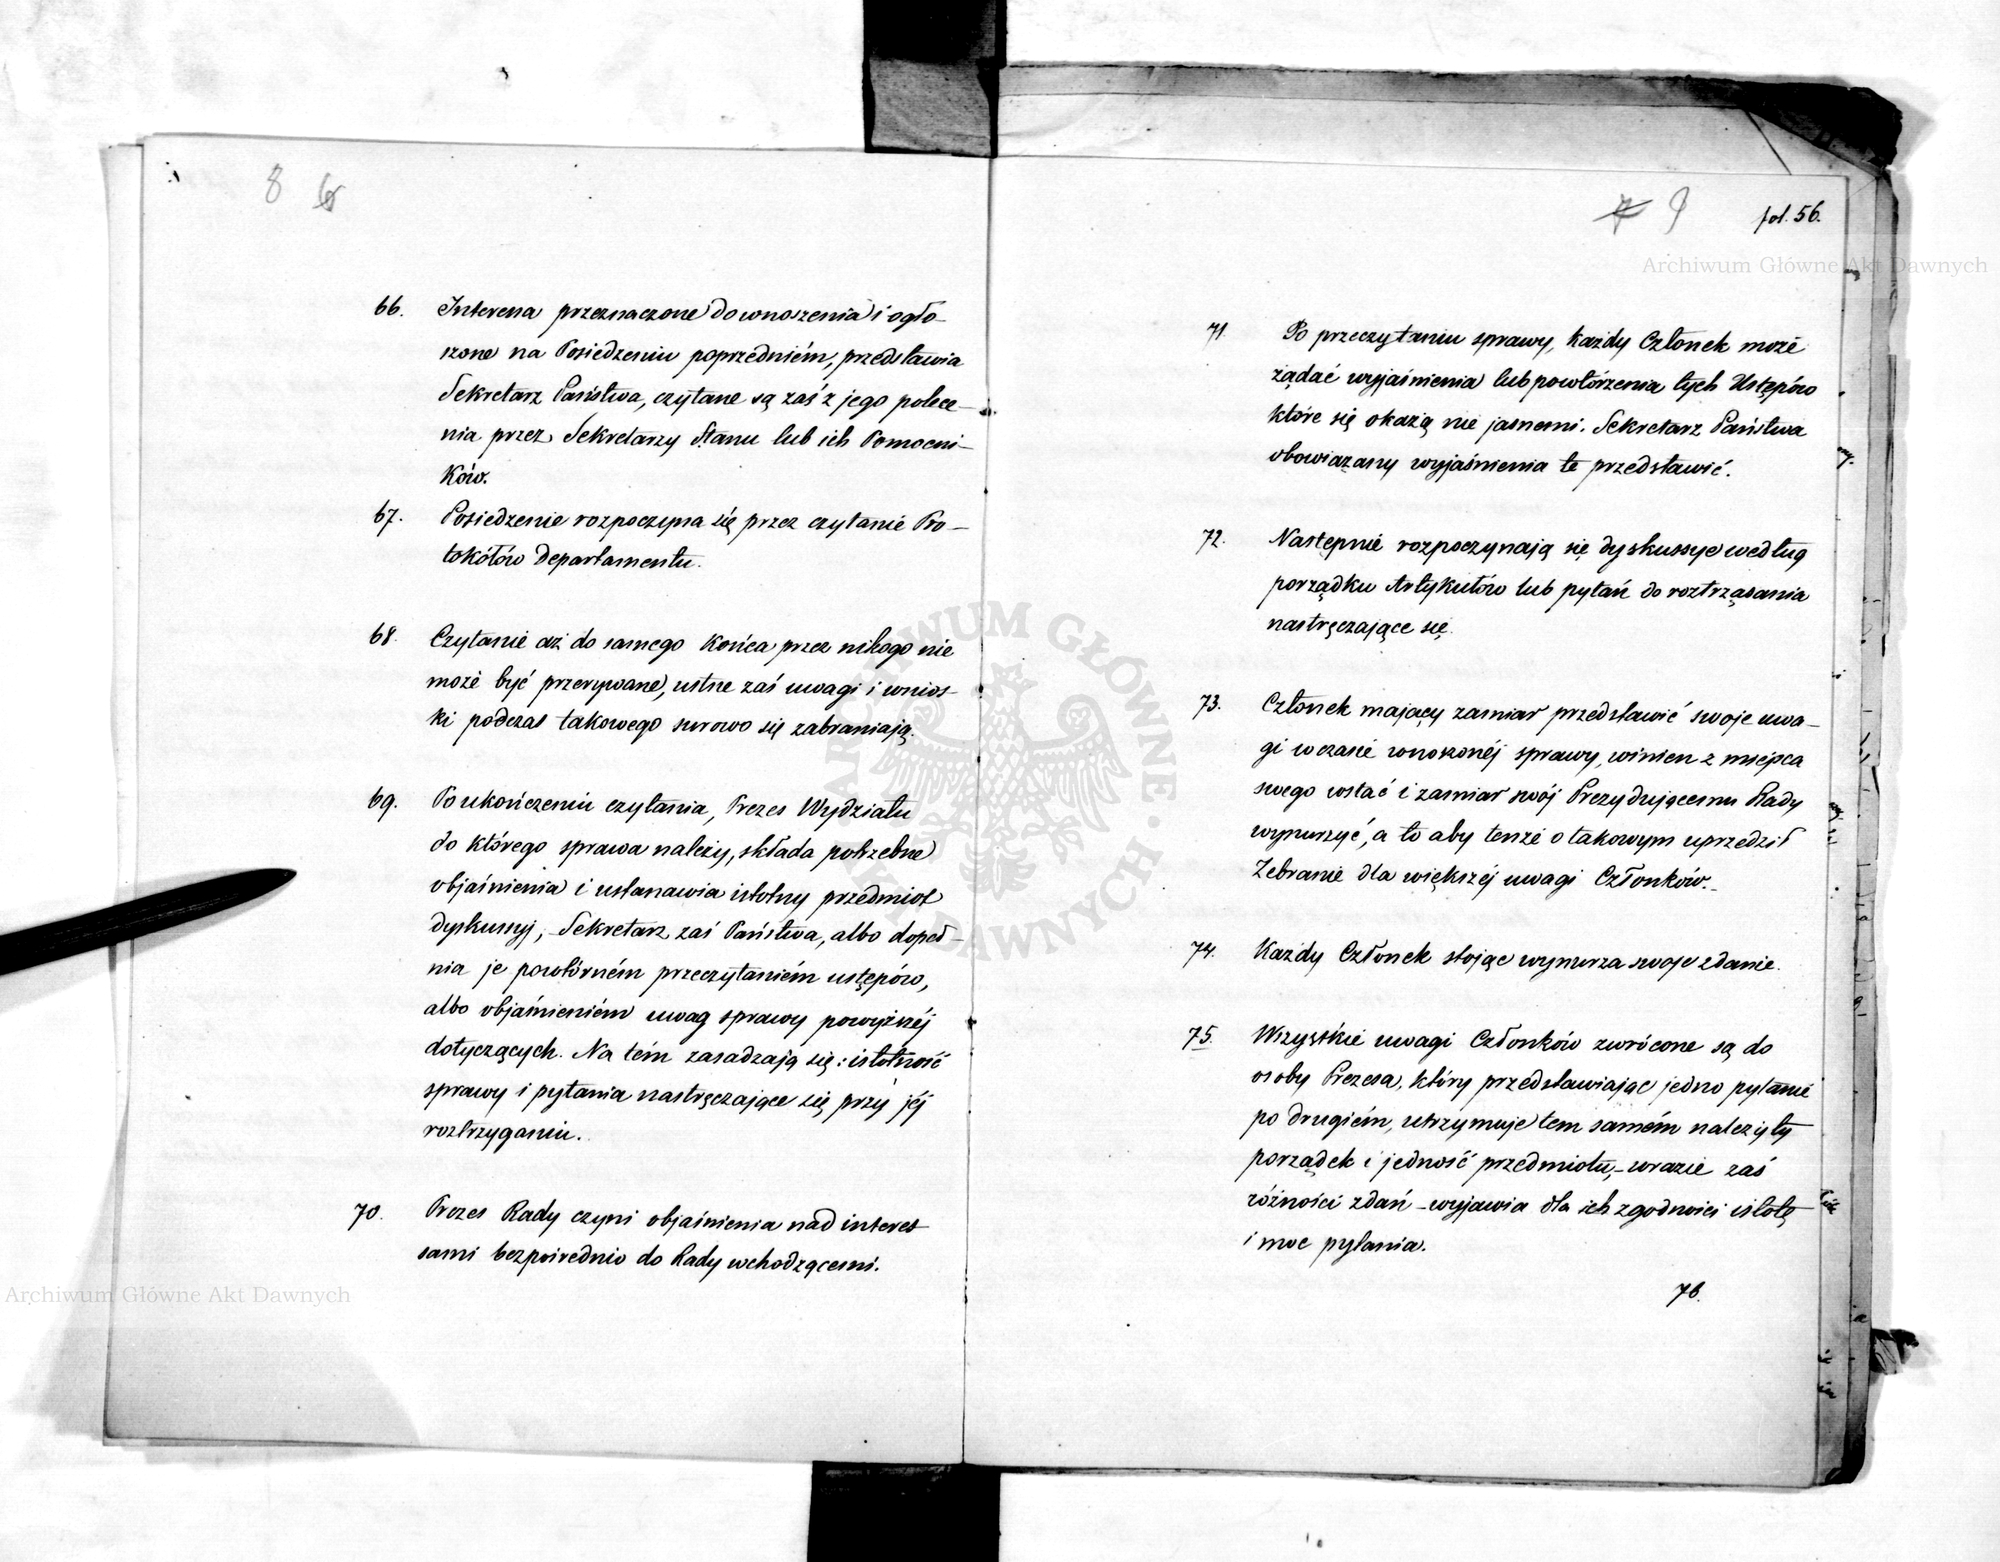 8 6
66. Interesa przeznaczone do wnoszenia i ogło-
szone na Posiedzeniu poprzedniém, przedstawia
Sekretarz Państwa, czytane są zaś z jego polece-
nia przez Sekretarzy Stanu lub ich Pomocni-
ków.
67. Posiedzenie rozpoczyna się przez czytanie Pro-
tokółów Departamentu.
68. Czytanie aż do samego końca przez nikogo nie
może być przerywane, ustne zaś uwagi i wnios-
ki podczas takowego surowo się zabraniają.
69. Po ukończeniu czytania, Prezes Wydziału
do którego sprawa należy, składa potrzebne
objaśnienia i ustanawia istotny przedmiot
dyskussyj, – Sekretarz zaś Państwa, albo dopeł-
nia je powtórném przeczytaniém ustępów,
albo objaśnieniém uwag sprawy powyższéj
dotyczących. Na tém zasadzają się: istotność
sprawy i pytania nastręczające się przy jéj
roztrzyganiu.
70. Prezes Rady czyni objaśnienia nad interes
sami bezpośrednio do Rady wchodzącemi.
Archiwum Główne Akt Dawnych
7 9 fol. 56.
Archiwum Główne Akt Dawnych
71. Po przeczytaniu sprawy, każdy Członek może
żądać wyjaśnienia lub powtórzenia tych Ustępów
które się okażą nie jasnemi. Sekretarz Państwa
obowiązany wyjaśnienia te przedstawić.
72. Następnie rozpoczynają się dyskussye według
porządku Artykułów lub pytań do roztrząsania
nastręczające się.
73. Członek mający zamiar przedstawić swoje uwa-
gi w czasie wnoszonéj sprawy, winien z miejsca
swego wstać i zamiar swój Prezydującemu Rady
wynurzyć, a to aby tenże o takowym uprzedził
Zebranie dla większéj uwagi Członków. –
74. Każdy Członek stojąc wynurza swoje zdanie.
75. Wszystkie uwagi Członków zwrócone są do
osoby Prezesa, który przedstawiając jedno pytanie
po drugiém, utrzymuje tem samém należyty
porządek i jedność przedmiotu, – w razie zaś
różności zdań – wyjawia dla ich zgodności istotę
i moc pytania.
76.
ARCHIWUM GŁÓWNE AKT DAWNYCH